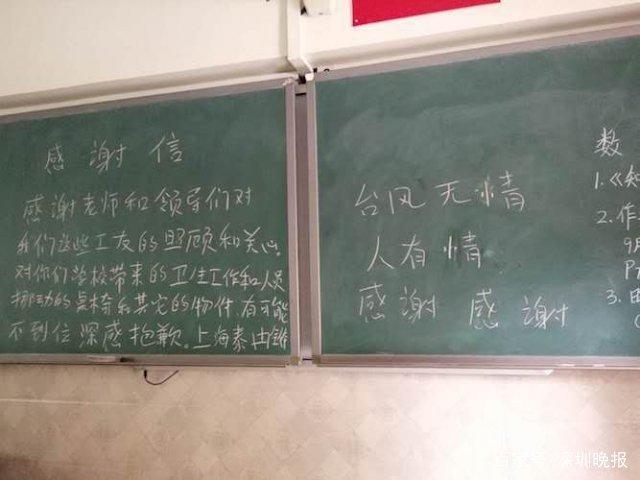 感谢信
感谢老师和领导们对
我们这些工友的照顾和关心。
对你们学校带来的卫生工作和人员
挪动的桌椅和其它的物件,有可能
不到位深感抱歉。上海泰
台风无情
人有情
感谢 感谢
数
1.《知
2.作
9月
3.由
百家号/深圳晚报